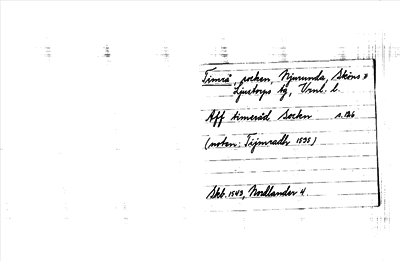 Timrå, socken, Njurunda, Sköns o
Ljustorps tg, Vrnl. l.
Aff timeråd Socken s. 126
(noten: Tijmradh 1535)
Skb. 1543, Nordlander 4.